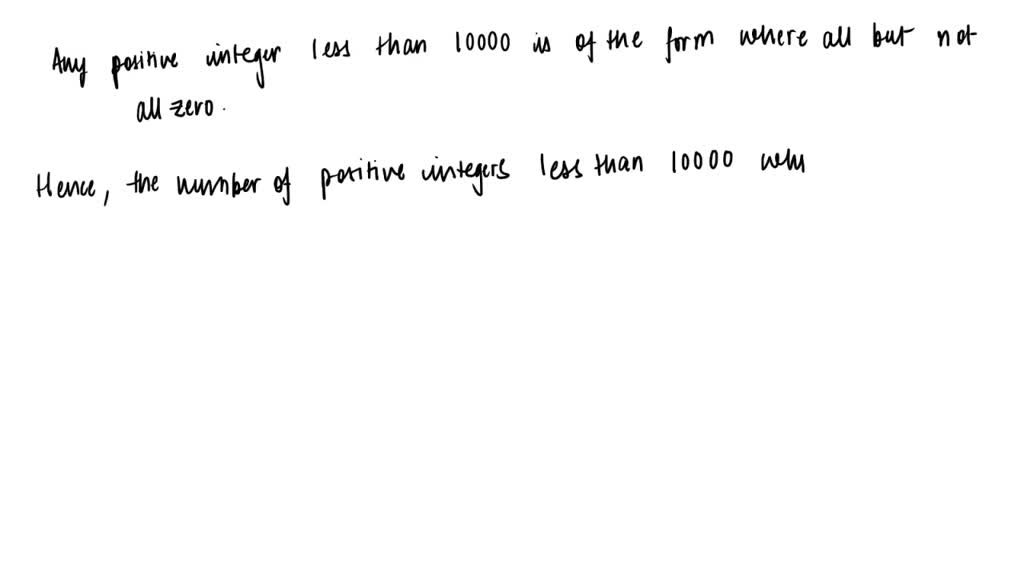 Any positive integer less than 10000 is of the form where all but not
all zero.
Hence, the number of positive integers less than 10000 who